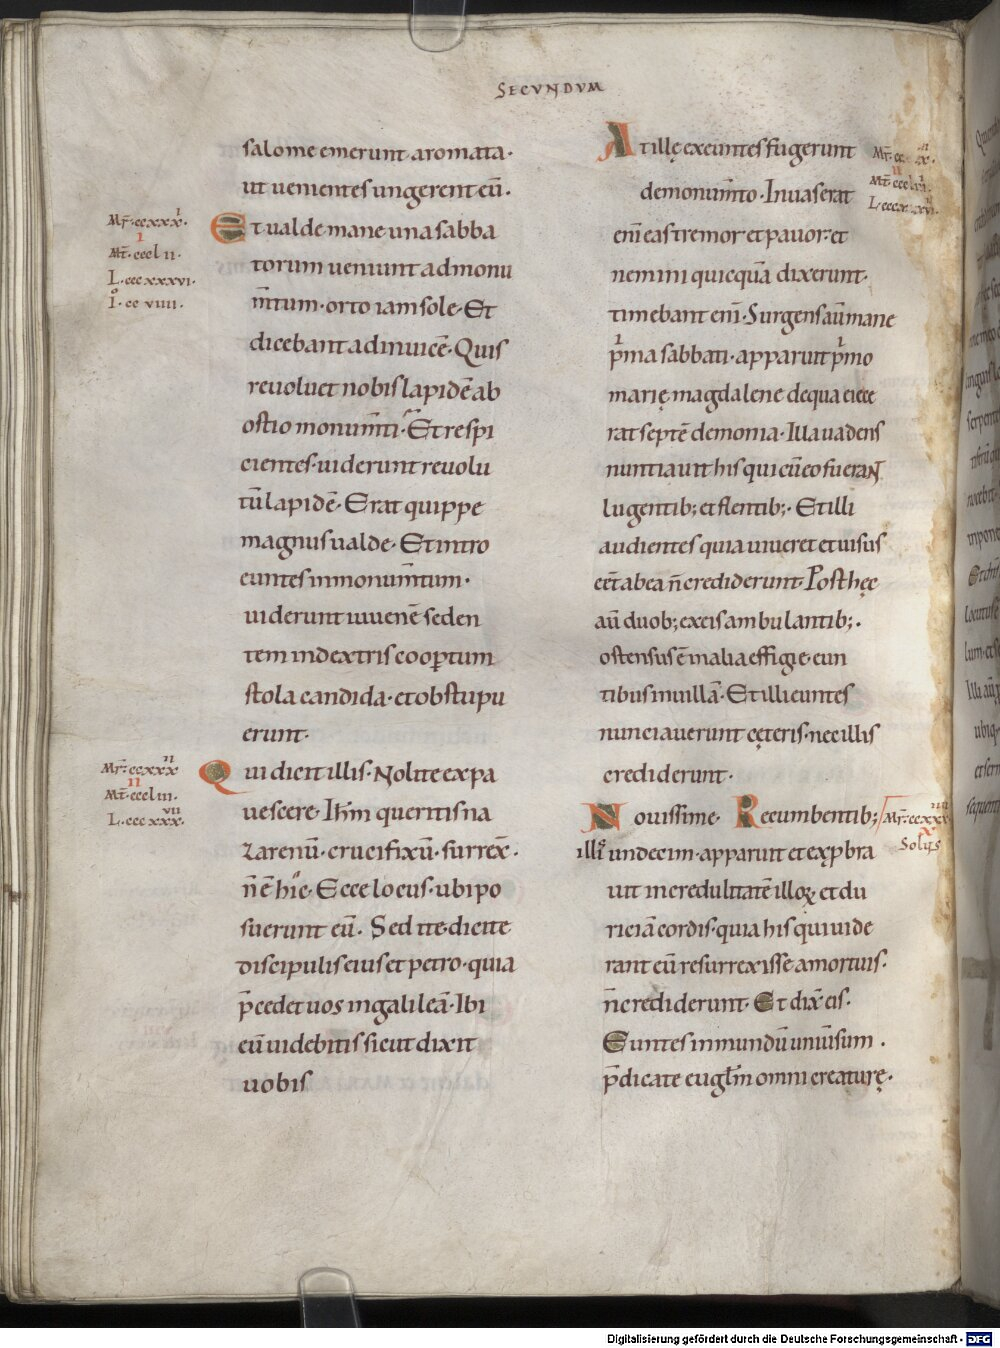 SECVNDVM
salome emerunt aromata·
ut uenientes ungerent eū·
Et ualde mane una sabba
torum ueniunt ad monu
m̄tum· orto iam sole· Et
dicebant adinuicē· Quis
reuoluet nobis lapidē ab
ostio monum̄ti· Et respi
cientes· uiderunt reuolu
tū lapidē· Erat quippe
magnus ualde· Et intro
euntes in monum̄tum·
uiderunt iuuenē seden
tem in dextris coop̄tum
stola candida· et obstupu
erunt·
Qui dicit illis· Nolite expa
uescere· Ih̄m queritis na
zarenū· crucifixū· surrex̄·
n̄ ē hic· Ecce locus· ubi po
suerunt eū· Sed ite· dicite
discipulis eius et petro· quia
p̄cedet uos in galileā· Ibi
eū uidebitis sicut dixit
uobis
Mr̄· ccxxxi
I
Mt̄· ccclii·
L· cccxxxvi·
Io· ccviiii·
Mr̄· ccxxxii
II
Mt̄· cccliii·
L· cccxxxvii
At illę exeuntes fugerunt
de monum̄to· Inuaserat
eni̅ eas tremor et pauor· et
nemini quicquā dixerunt·
timebant eni̅· Surgens aū mane
pͥma sabbati· apparuit pͥmo
marię magdalene de qua eiece
rat septē demonia· Illa uadens
nuntiauit his qui cū eo fuerant
lugentib; et flentib;· Et illi
audientes quia uiueret et uisus
eēt ab ea n̄ crediderunt· Post hęc
aū duob; ex eis ambulantib;·
ostensus ē in alia effigie· eun
tibus in uillā· Et illi euntes
nunciauerunt cęteris· nec illis
crediderunt·
Nouissime Recumbentib;
illis undecim· apparuit et exp̱bra
uit incredulitatē illoꝝ et du
riciā cordis· quia his qui uide
rant eū resurrexisse a mortuis·
n̄ crediderunt· Et dix̄ eis·
Euntes in mundū uniu̅sum·
p̄dicate euugl̄m omni creaturę·
II
Solus
Digitalisierung gefördert durch die Deutsche Forschungsgemeinschaft · DFG